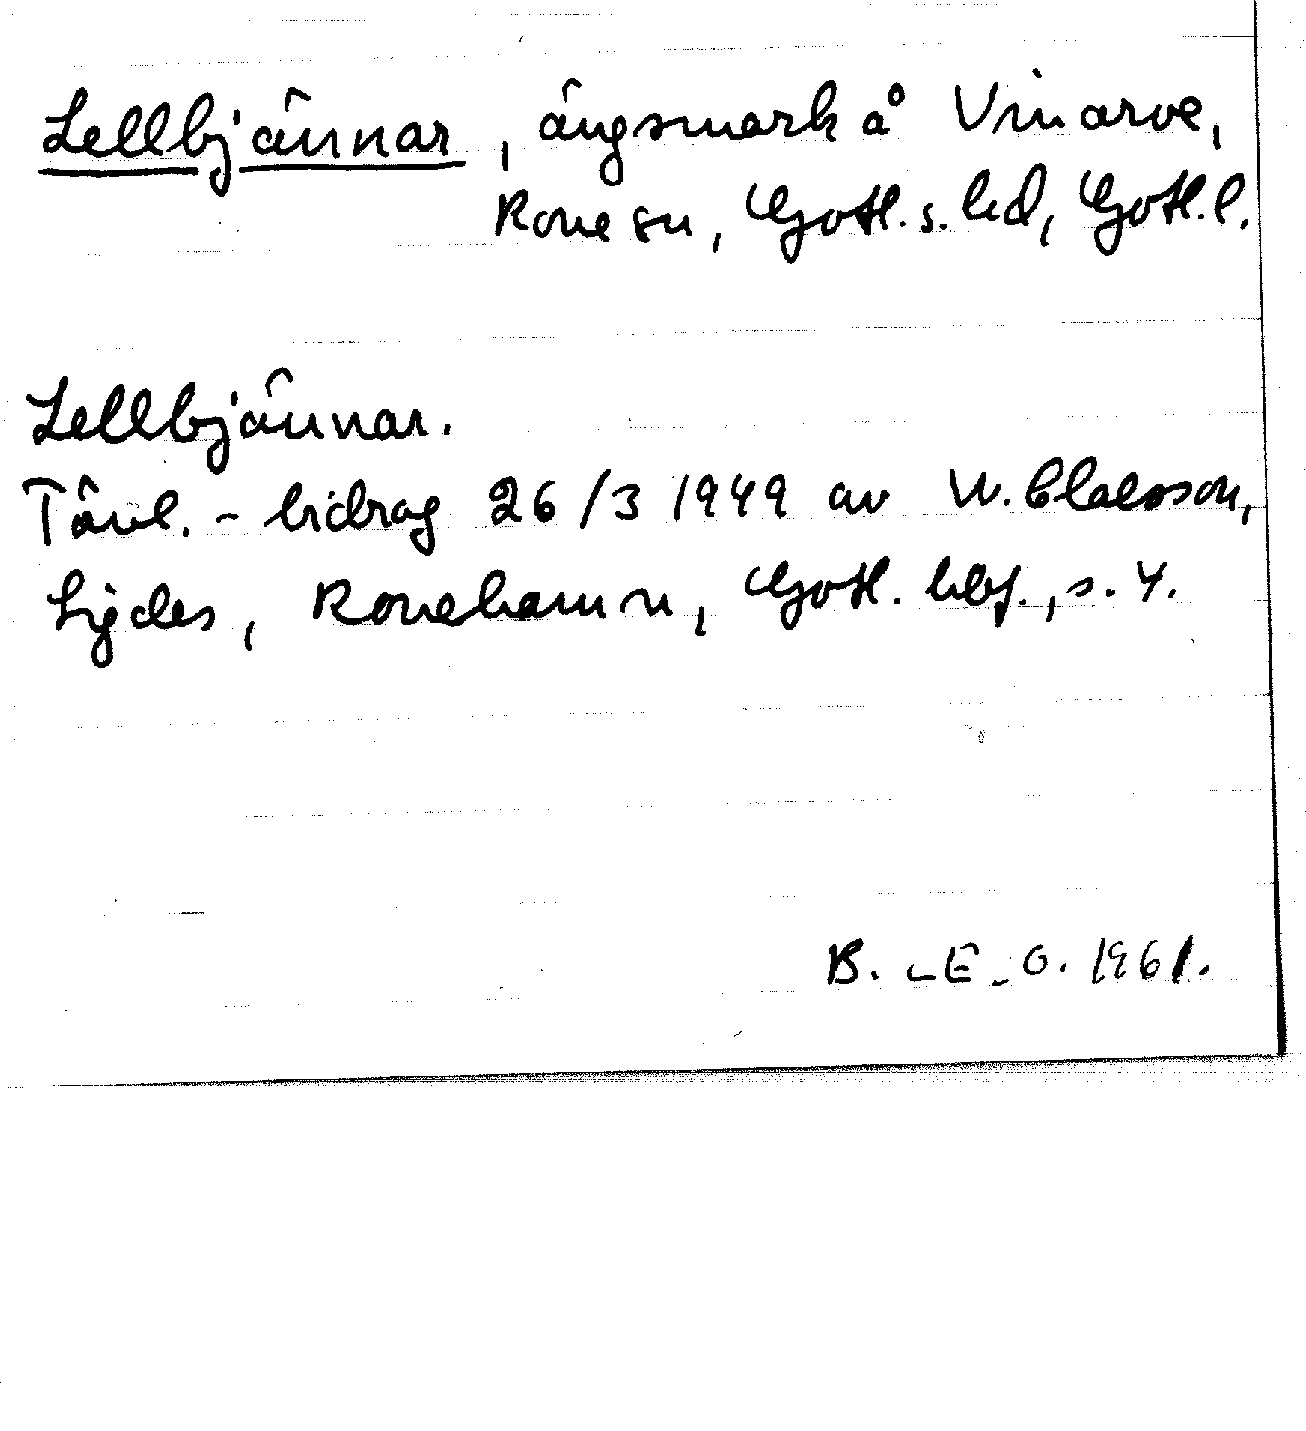 Lellbjännar, ängsmark å Vinarve,
Rone sn, Gotl. s. hd, Gotl. l.
Lellbjännar.
Tävl.-bidrag 26/3 1949 av W. Claesson,
Ligdes, Ronehamn, Gotl. hbf., s. 4.
B. -E. O. 1961.